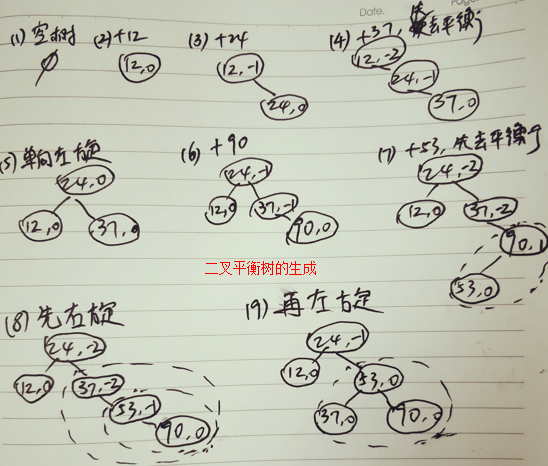 Date.
Page
(1) 空树
Ø
(2) +12
12,0
(3) +24
12,-1
24,0
(4) +37, 失去平衡了
12,-2
24,-1
37,0
(5) 单向左旋
24,0
12,0
37,0
(6) +90
24,-1
12,0
37,-1
90,0
(7) +53, 失去平衡了
24,-2
12,0
37,-2
90,1
53,0
二叉平衡树的生成
(8) 先右旋
24,-2
12,0
37,-2
53,-1
90,0
(9) 再左旋
24,-1
12,0
53,0
37,0
90,0